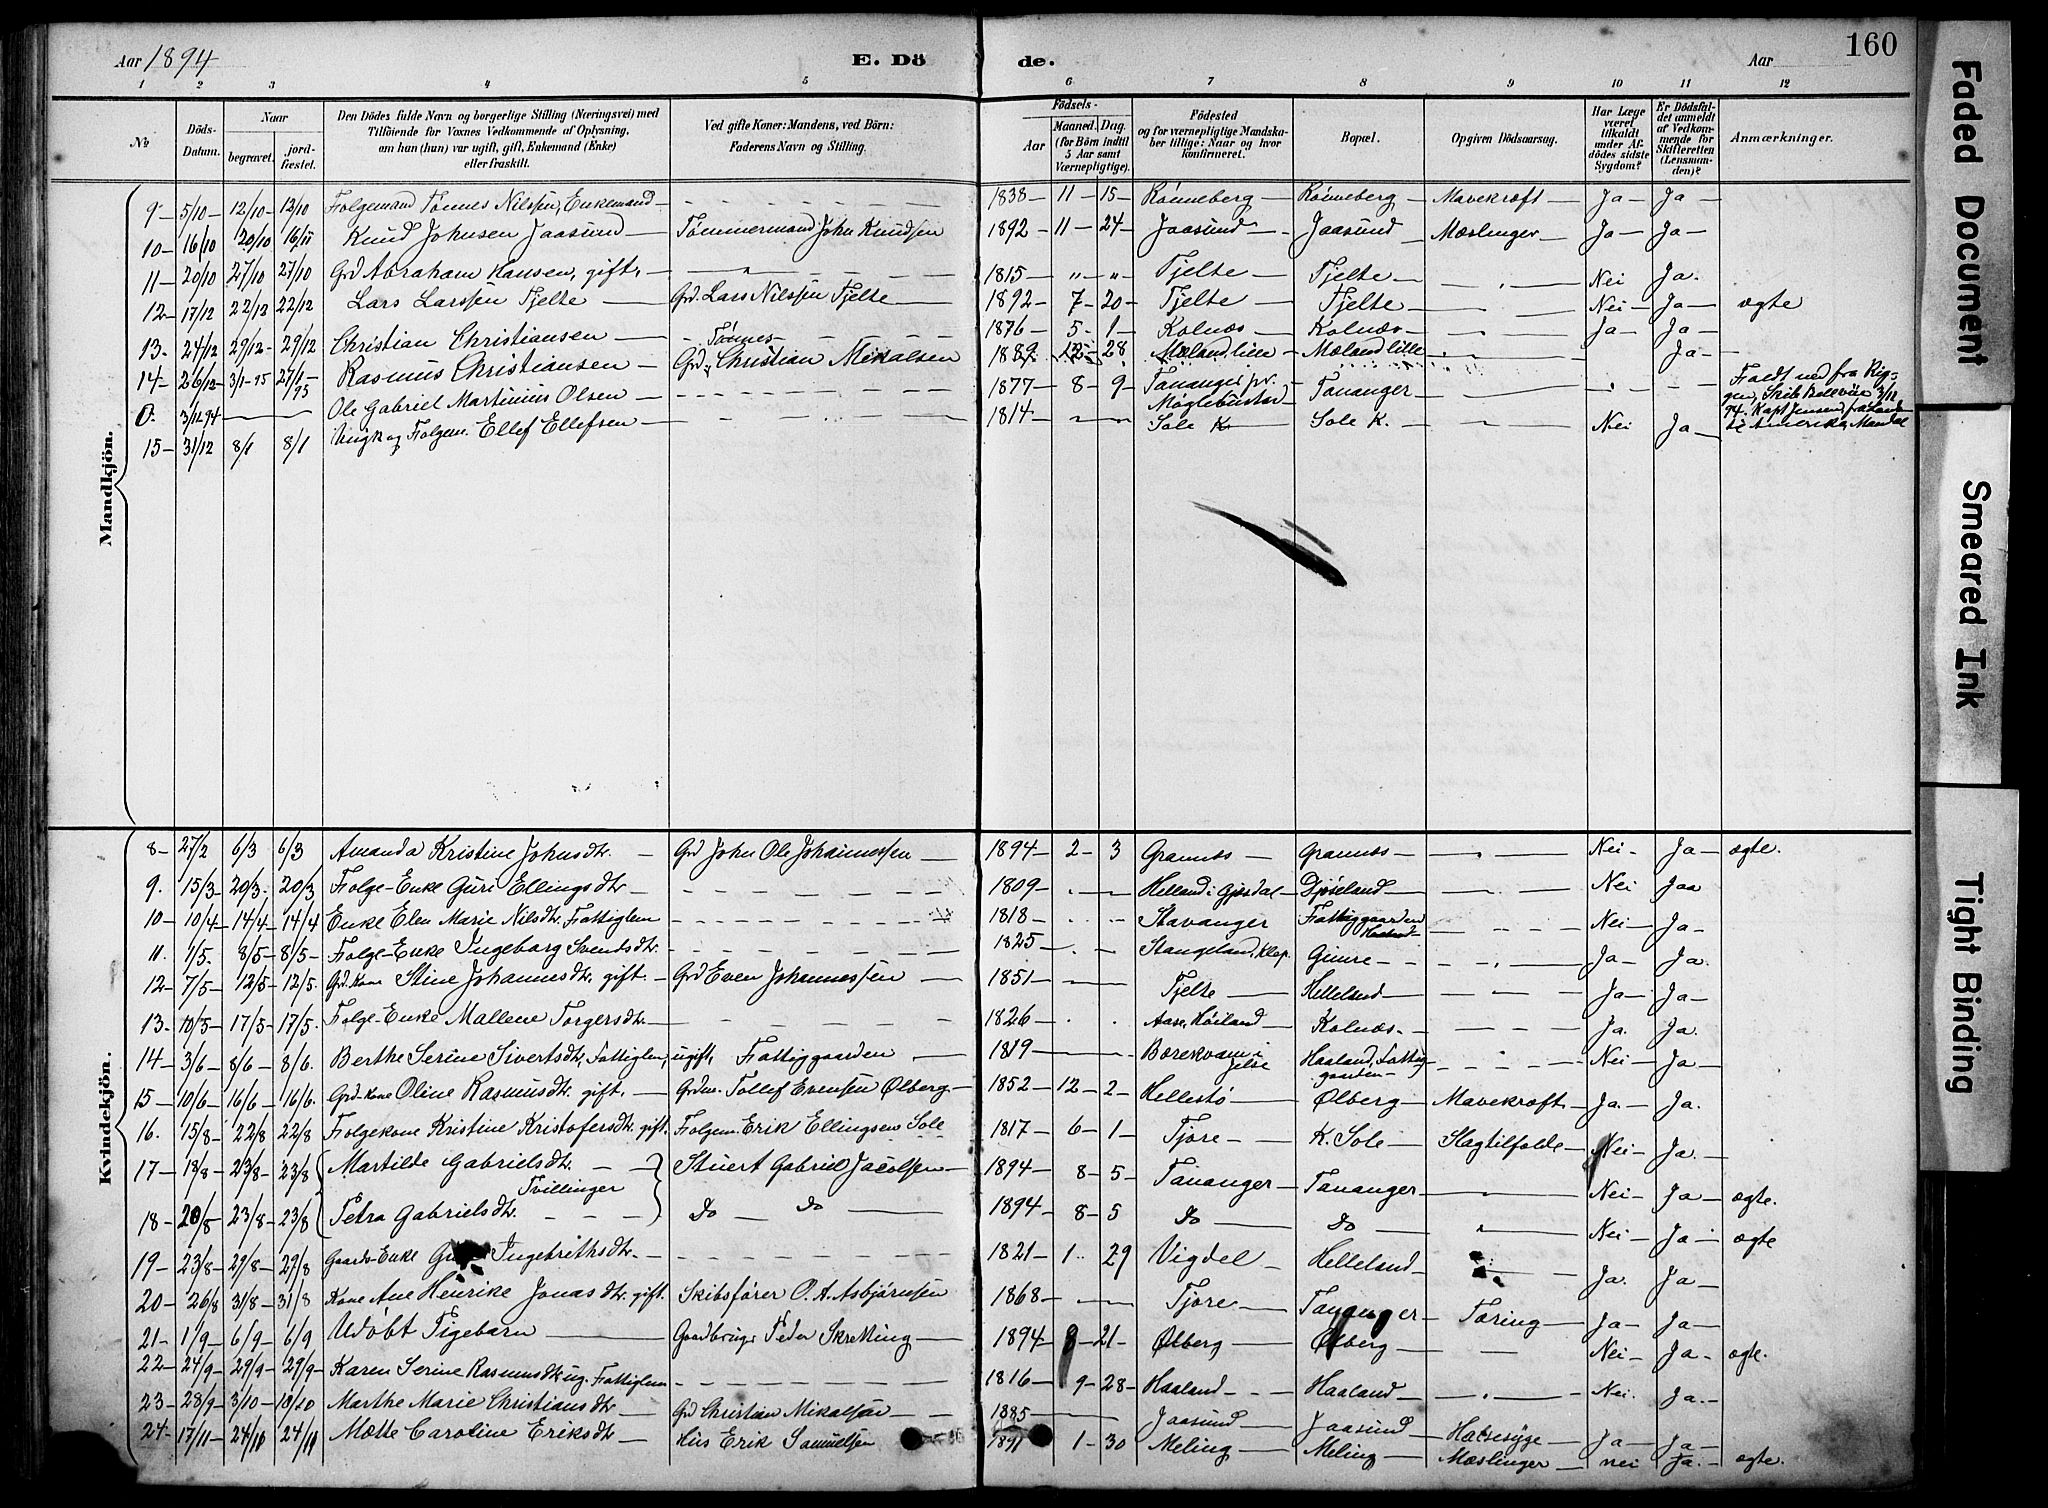 Aar 1894
E. Dö
de.
Aar
160
1 2 3 4 5 6 7 8 9 10 11 12
No
Döds-Datum.
Naar
begravet.
jord-fæstet.
Den Dödes fulde Navn og borgerlige Stilling (Næringsvei) med
Tilföiende for Voxnes Vedkommende af Oplysning,
om han (hun) var ugift, gift, Enkemand (Enke)
eller fraskilt.
Ved gifte Koner: Mandens, ved Börn:
Faderens Navn og Stilling.
Födsels-
Aar
Maaned. Dag.
(for Börn indtil
5 Aar samt
Værnepligtige).
Födested
og for værnepligtige Mandska-
ber tillige: Naar og hvor
konfirmeret.
Bopæl.
Opgiven Dödsaarsag.
Har Læge
været
tilkaldt
under Af-
dödes sidste
Sygdom?
Er Dödsfal-
det anmeldt
af Vedkom-
mende for
Skifteretten
(Lensman-
den)?
Anmærkninger.
Mandkjön.
9 - 5/10 - 12/10 - 13/10 Folgemand Tønnes Nilssen, Enkemand - 1838 - 11 - 15 - Rønneberg - Rønneberg - Mavekræft - Ja - Ja -
10 - 16/10 20/10 16/11 Knud Johnsen Jaasund - Tømmermand John Knudsen 1892 - 11 - 24 - Jaasund - Jaasund - Mæslinger - Ja - Ja -
11 - 20/10 27/10 27/10 Grd Abraham Hansen, gift, - " - 1815 - " - " - Tjelte - Tjelte - Nei Ja.
12 - 17/12 22/12 22/12 Lars Larssen Tjelte - Grd. Lars Nilssen Tjelte - 1892 - 7 - 20 - Tjelte - Tjelte - Nei - Ja - ægte
13 - 24/12 29/12 - 29/12 Christian Christiansen - Tønnes - 1876 - 5 - 1 - Kolnæs - Kolnæs - Ja - Ja -
14 - 26/12 - 3/1-95 27/1-95 Rasmus Christiansen - Grd. Christian Mikalsen 1889 12 - 28 Mæland, lille - Mæland lille Ja -
0. - 3/12 94 - Ole Gabriel Martinius Olsen - 1877 - 8 - 9 - Tananger pr. Møglebustad Tananger - Faldt ned fra Rig-
gen, Skib 3/12
94. Kapt Jensen, fra
i Amerika, Mandal
15 - 31/12 8/1 8/1 og Folgem. Ellef Ellefsen - 1814 - Sole K. Sole K. - Nei Ja -
Kvindekjön.
8 - 27/2 6/3 6/3 Amanda Kristine Johnsdtr. - Grd John Ole Johannessen - 1894 - 2 - 3 Grannes - Grannes - Nei - Ja - ægte.
9. 15/3 20/3. 20/3 Folge-Enke Guri Ellingsdtr - 1809 - Helland i Gjesdal - Djøseland - Nei Jaa
10 - 10/4 - 14/4 - 14/4 Enke Elen Marie Nilsdtr, Fattiglem - 1818 - Stavanger Fattiggaarden Nei - Ja -
11. 1/5. 8/5 - 8/5 - Folge-Enke Ingeborg Svendsdtr. 1825 - Stangeland, Klep. Gimre - Ja - Ja.
12 - 7/5 - 12/5 - 12/5. Grd. kone Stine Johannesdtr, gift. - Grd Even Johannessen - 1851 - Tjelte - Helleland - Ja - Ja -
13 - 10/5 - 17/5 - 17/5. Folge-Enke Mallene Torgersdtr. - 1826 - Aase, Høiland - Kolnæs. - Ja. Ja.
14 - 3/6 - 8/6 - 8/6. Berthe Serine Sivertsdtr, Fattiglem, ugift, Fattiggaarden - 1819 - Bærekvam i Jelse Haaland, Fattig-gaarden - Nei - Ja -
15 - 10/6 - 16/6 - 16/6. Grd-kone Oline Rasmusdtr. gift. - Grdm. Tollef Evensen Ølberg - 1852 - 12 - 2 - Hellestø - Ølberg - Mavekræft - Ja. - Ja.
16. 15/8 - 22/8 22/8 Folgekone Kristine Kristofersdtr. gift. Folgem. Erik Ellingsen Sole 1817 - 6 - 1 - Tjøre - K. Sole - Slagtilfælde Nei - Ja. -
17 - 18/8 - 23/8 - 23/8 Martilde Gabrielsdtr. - Stuert Gabriel Jacobsen - 1894 - 8 - 5 - Tananger - Tananger - Nei - Ja - ægte.
Tvillinger
18 - 20/8 23/8 - 23/8 Petra Gabrielsdtr. - Do - Do - 1894 - 8 - 5 Do - Do - Nei - Ja - ægte
19 - 23/8 - 29/8 - 29/8 Gaards-Enke Ingebrithsdtr. - 1821 - 1.. 29 Vigdel - Helleland - Ja. Ja -
20 - 26/8 31/8 - 31/8 Kone Ane Henrike Jonasdtr. gift. Skibsfører O. A. Asbjørnsen 1868 - Tjøre - Tananger - Tæring - Ja - Ja -
21 - 1/9 - 6/9 - 6/9 Udøbt Pigebarn - Gaardbrug. Peder Skretting - 1894 - 8 - 21 - Ølberg - Ølberg - Nei - Ja - ægte.
22 - 24/9 - 29/9 - 29/9 - Karen Serine Rasmusdtr ug. Fattiglem - 1816 - 9 - 28 - Haaland - Haaland - Nei. Ja. -
23 - 28/9 - 3/10 - 18/10 Marthe Marie Christiansdtr. - Grd Christian Mikalsen - 1885 - Jaasund - Jaasund - Halsesyge - Ja - Ja -
24 - 17/11 - 24/11 24/11 Mette Caroline Eriksdtr - Hus Erik Samuelsen 1891 1 - 30 Meling - Meling - Mæslinger - nei Ja. - ægte.
Faded Document
Smeared Ink
Tight Binding